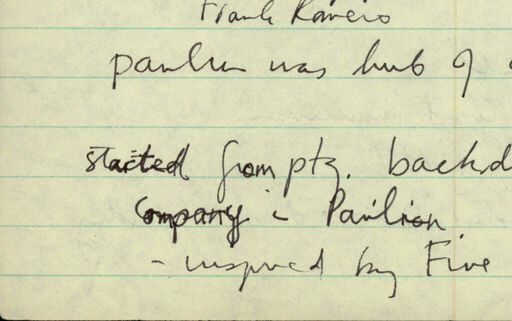 Frank Romero
pavilion was hub of
started from ptg. backd
company in Pavilion
- inspired by Five